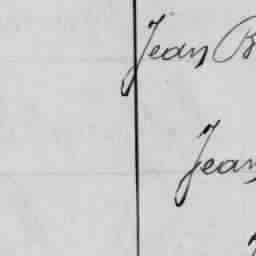 Jean B
Jean